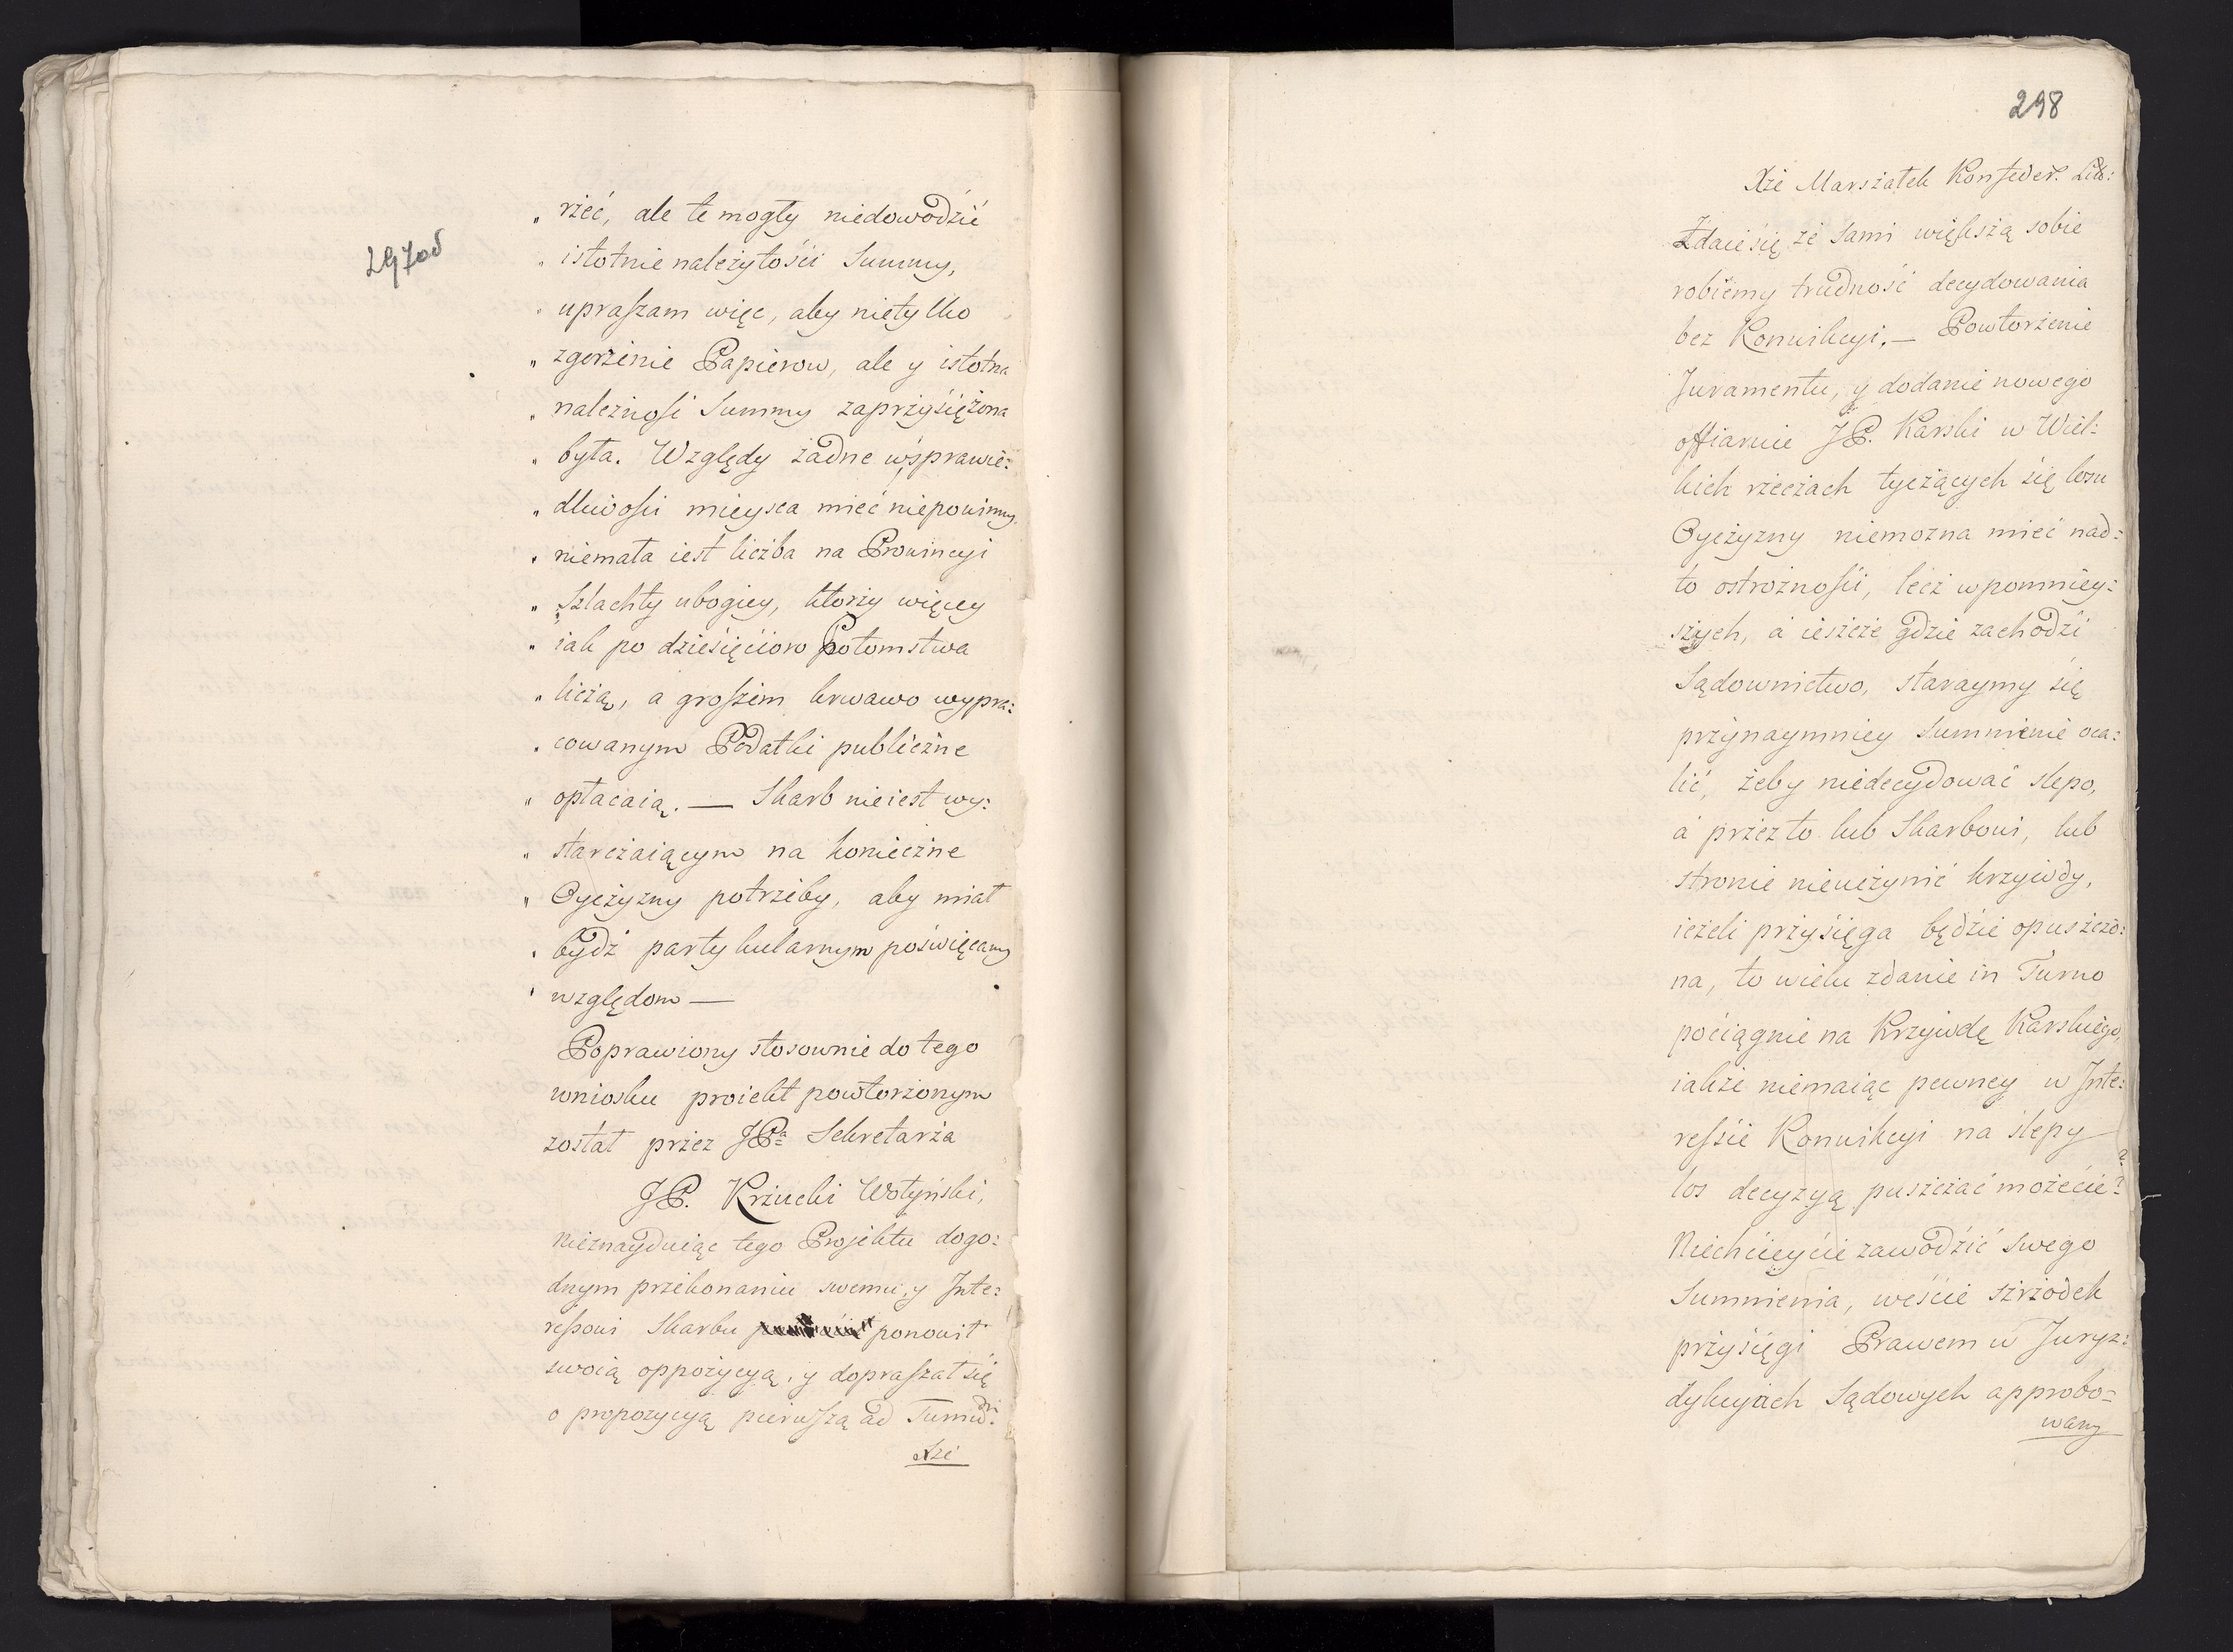 297od
„ rzeć, ale te mogły niedowodźić
„ istotnie należytości Summy,
„ upraszam więc, aby nietylko
„ zgorzenie Papierow, ale y istotna
„ należnosc Summy zaprzysiężona
„ była. Względy żadne wsprawie:
„ dliwości mieysca mieć niepowinny.
„ niemała iest liczba na Prowincyi
„ Szlachty ubogiey, ktorzy więcey
„ iak po dzieśięcioro Potomstwa
„ liczą, a groszem krwawo wypra:
„ cowanym Podatki publiczne
„ opłacaią. — Skarb nieiest wy:
„ starczaiącym na konieczne
„ Oyczyzny potrzeby, aby miał
„ bydź partykularnym poświęcany
„ względom —
Poprawiony stosownie do tego
wniosku proiekt powtorzonym
został przez JPa Sekretarza
JP. Krzucki Wołyński,
Nieznayduiąc tego Projektu dogo:
dnym przekonaniu swemu, y Inte:
ressowi Skarbu ponowił
swoią oppozycyą, y dopraszał się
o propozycyą pierwszą ad Turnum
Xże
298
Xże Marszałek Konfeder. Litt:
Zdaie się że Sami większą sobie
robiemy trudność decydowania
bez Konwikcyi. — Powtorzenie
Juramentu, y dodanie nowego
offiaruie JP. Karski w Wiel:
kich rzeczach tyczących się losu
Oyczyzny niemozna mieć nad:
to ostrożności, lecz wpomniey:
szych, a ieszcze gdzie zachodzi
Sądownictwo, staraymy się
przynaymniey Summienie oca:
lić, żeby niedecydować slepo,
a przez to lub Skarbowi, lub
stronie nieuczynić krzywdy,
ieżeli przysięga będzie opuszczo:
na, to wielu zdanie in Turno
pociągnie na Krzywdę Karskiego,
iakże niemaiąc pewney w Inte:
ressie Konwikcyi na slepy
los decyzyą puszczać możecie?
Niechcieycie zawodźić Swego
Summienia, weście szrzodek
przysięgi Prawem w Juryz:
dykcyiach Sądowych approbo=
wany